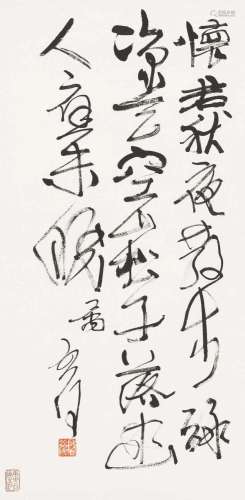 懷君秋夜散步詠
涼天空山松子落幽
人應未眠